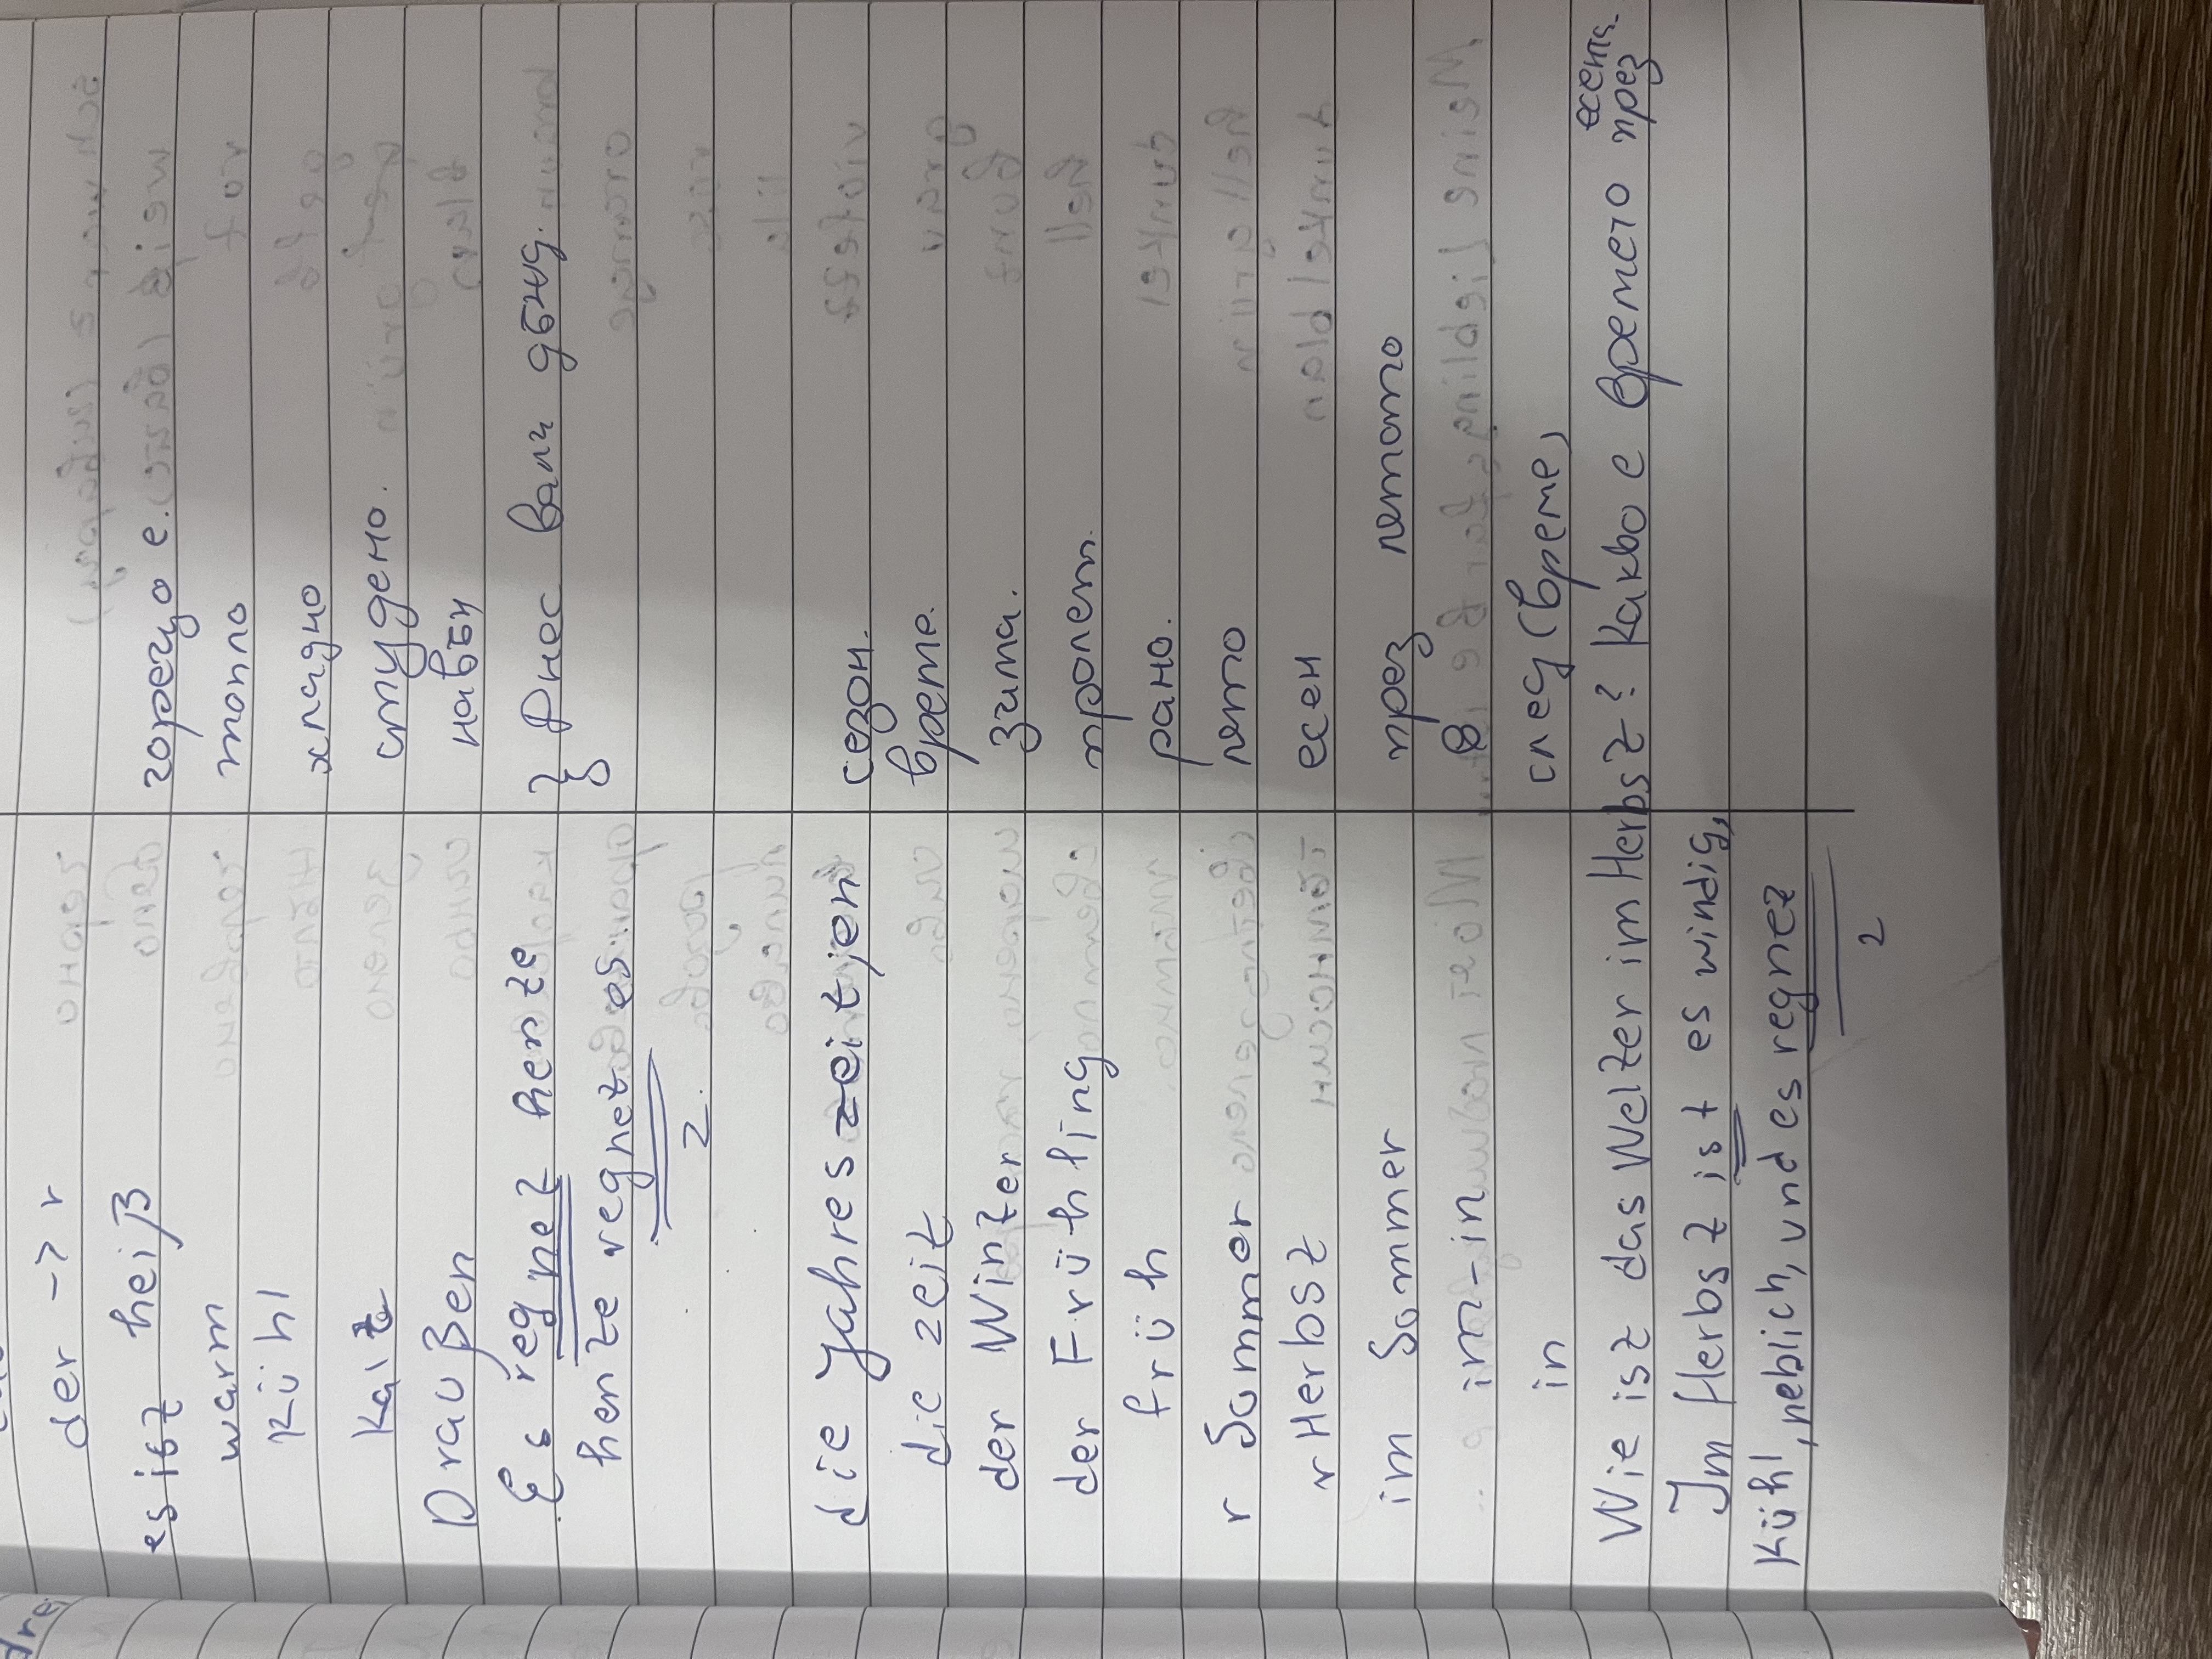 der -> r
es ist heiß горещо е.
warm топло
kühl хладно
kalt студено.
Draußen навън
Es regnet heute } Днес вали дъжд.
heute regnet es.
2.
die Jahreszeiten сезон.
die zeit време.
der Winter зима.
der Frühling пролет.
früh рано.
r Sommer лято
r Herbst есен
im Sommer през лятото
im-in в
in след (време)
Wie ist das Wetter im Herbst? Какво е времето през есента.
Im Herbst ist es windig,
kühl, neblich, und es regnet
2